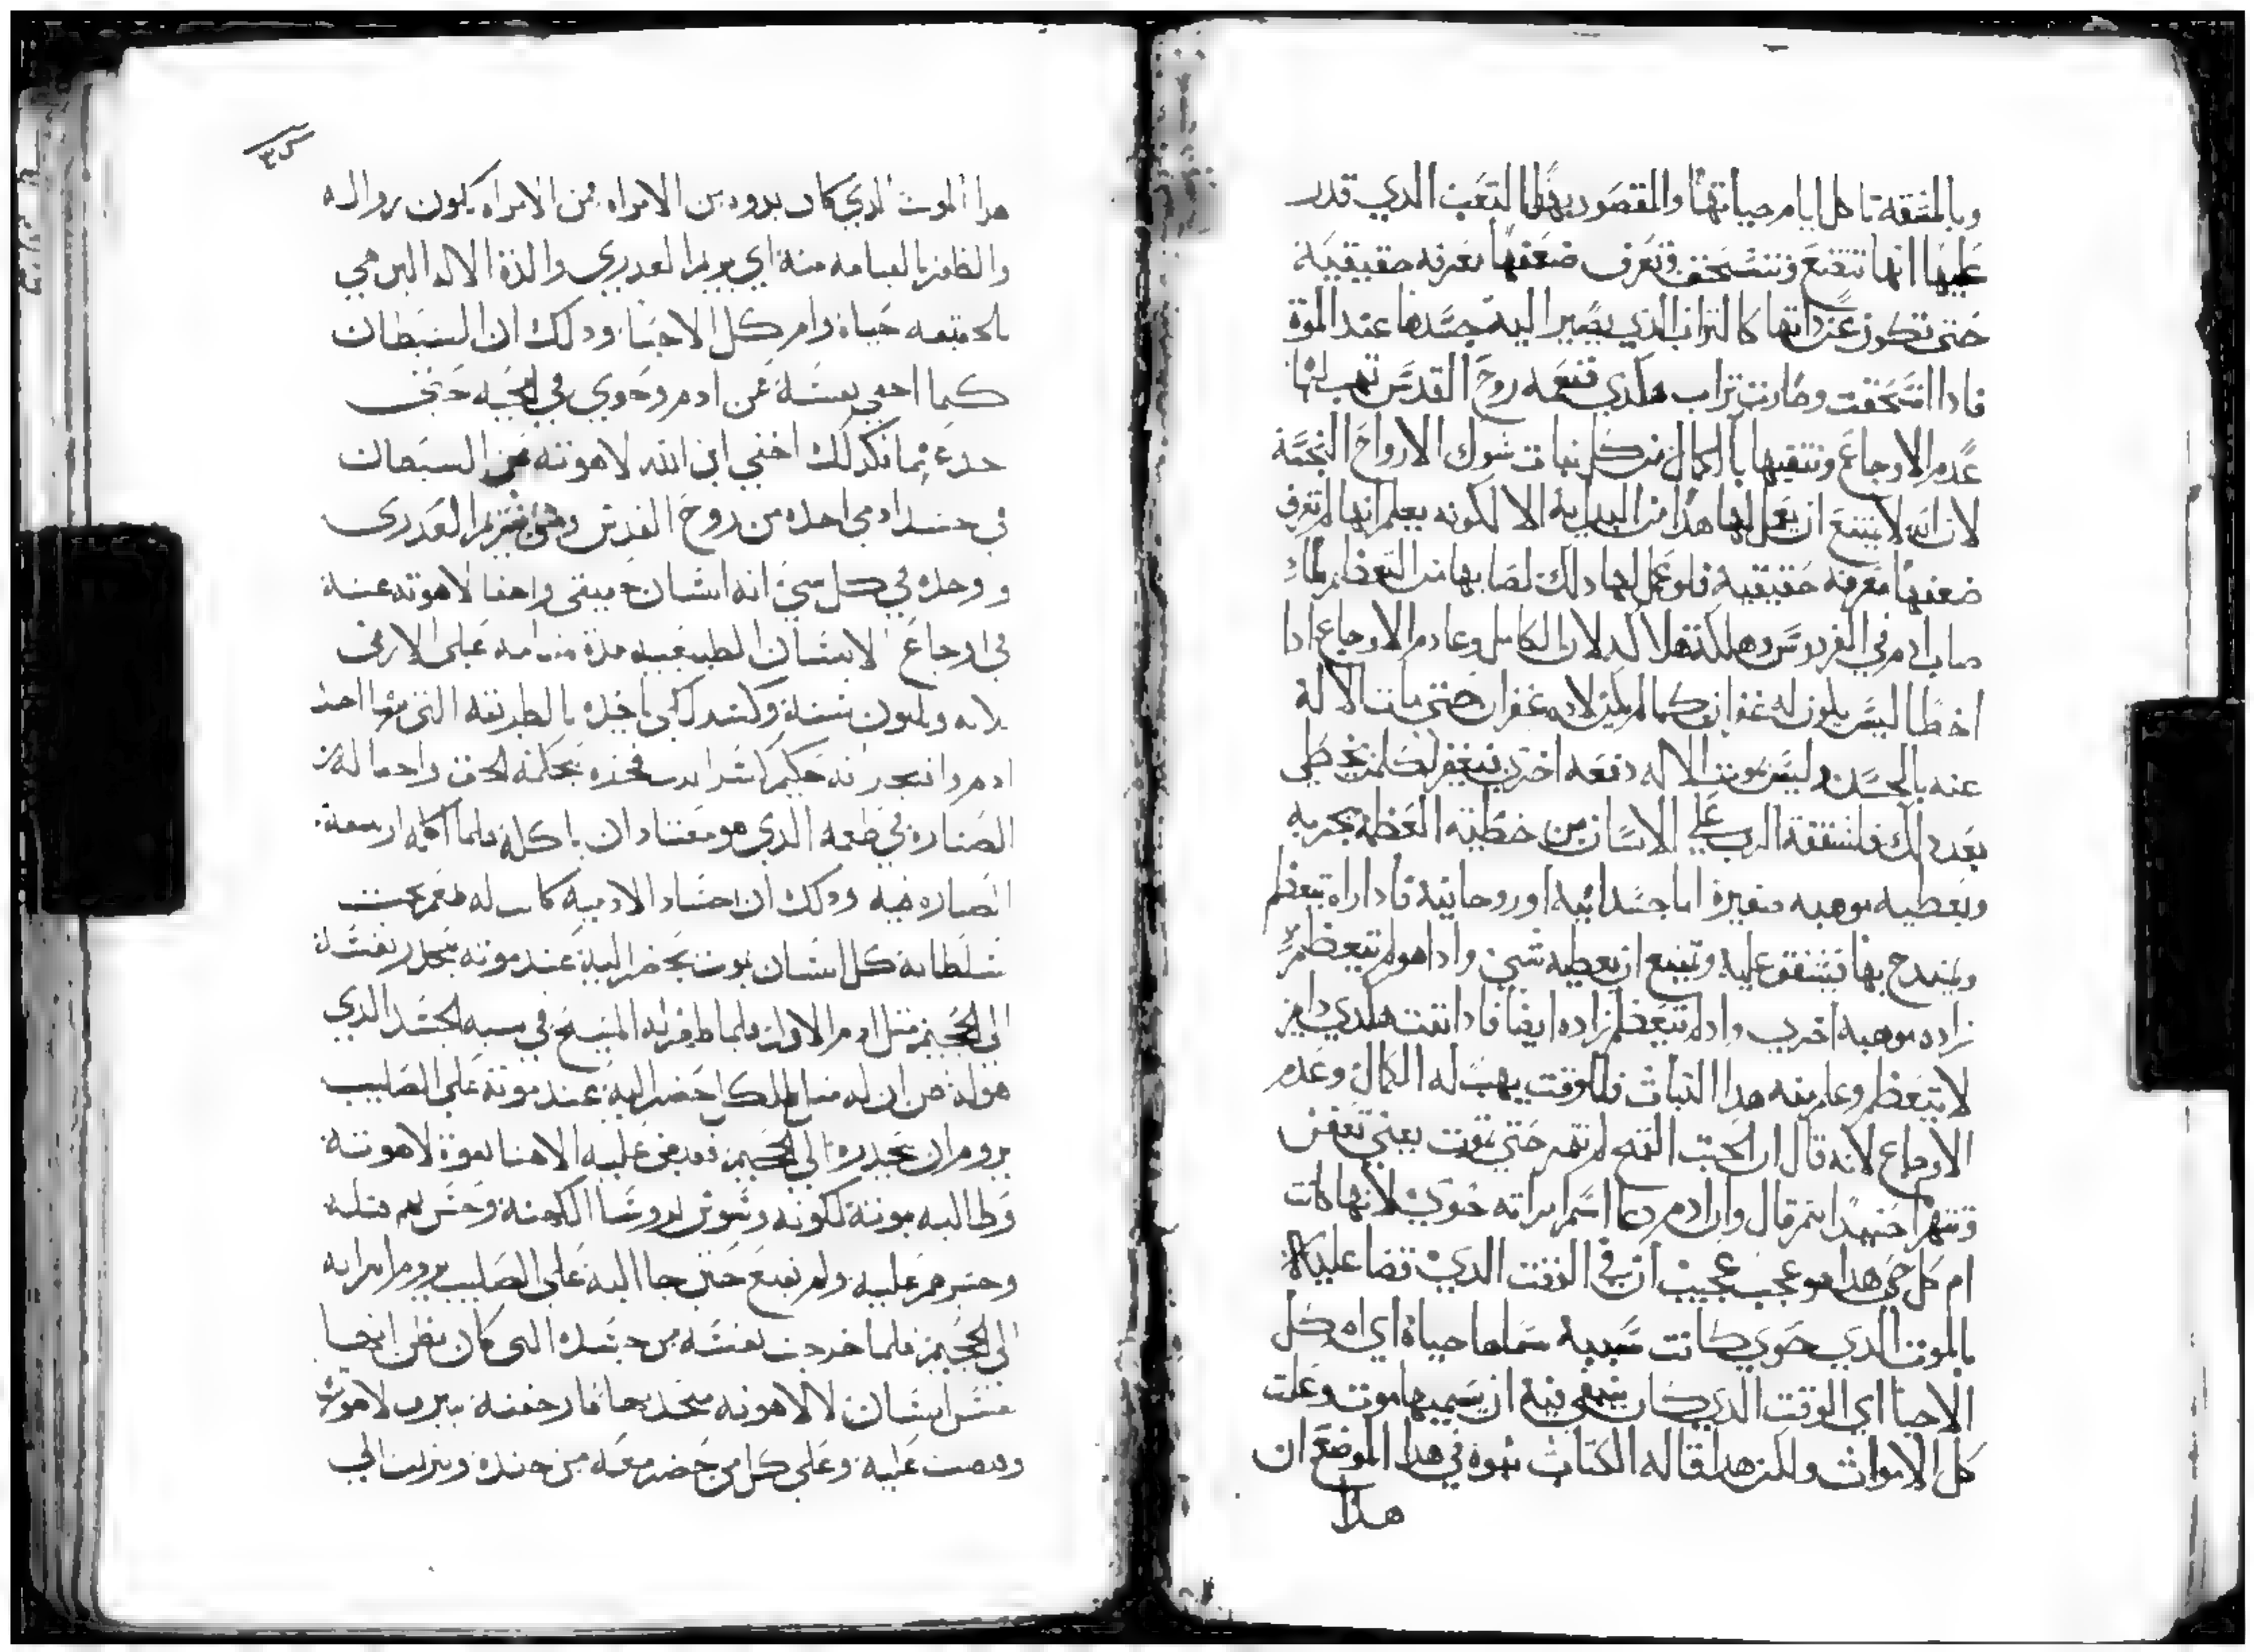 وبالمشقه تاكل ايام حياتها والمقصود بهدا التعب الدي قدر
عليها انها تتضع وتنسحق وتعرف ضعفها معرفه حقيقيه
حتي تكون عند داتها كالتراب الدي يصير اليه جسدها عند الموة
فادا انسحقت وصارت تراب هكدي فنعمه روح القدس تهب لها
عدم الاوجاع وتنقيها بالكمال من كل نبات شوك الارواح النجسة
لان الله لا يمتنع ان يعمل لها هدا من البدايه الا لكونه يعلم انها لم تعرف
ضعفها معرفه حقيقيه فلو عمل لها دلك لصابها من التعظم كما
صاب ادم في الفردوس وهلكت هلاك الابد لان الكامل وعادم الاوجاع ادا
اخطا ليس يكون له غفران كما لم يكن لادم غفران حتي مات الاله
عنه بالجسد وليس يموت الاله دفعه اخري فيغفر لكلمن يخطي
بعد دلك فلشفقة الرب علي الانسان من خطية العظمة يجربه
ويعطيه موهبه صغيرة اما جسدانيه او روحانية فادا راه تعظم
وتمدح بها فيشفق عليه ويمنع ان يعطيه شي وادا هو لم يتعظم
زاده موهبه اخري وادا لم يتعظم زاده ايضا فادا تبت هكدي دايم
لا يتعظم وعلم منه هدا التبات فللوقت يهب له الكمال وعدم
الاوجاع لانه قال ان الحبت القمح لم تتمر حتي تموت يعني تعفن
وتنهرا حينيدا تتمر قال وان ادم دعا اسم امراته حوي لانها كانت
ام كل حي هدا هو عجب عجيب ان في الوقت الدي قضا عليه الاله
بالموت الدي حوي كانت سببه سماها حياة اي ام كل
الاحيا اي الوقت الدي كان ينبغي فيه ان يسميها موت وعلت
كل الاموات ولكن هدا قاله الكتاب نبوة في هدا الموضع ان
هدا
هدا الموت الدي كان بدوه من الامراه فمن الامراه يكون زواله
والظفر بالقيامه منه اي مريم العدري والدة الاله الدي هي
بالحقيقه حياة وام كل الاحيا ودلك ان الشيطان
كما اخفي نفسه عن ادم وحوي في الحيه حتي
خدعهما فكدلك اخفي ابن الله لاهوته من الشيطان
في جسد ادمي اخده من روح القدس ومن مريم العدري
ووحده في كل شي انه انسان حقيقي واخفا لاهوته عنه
في اوجاع الانسان الطبيعيه مدة مقامه علي الارض
تلاته وتلتون سنة وكسر لكي ياخده بالطريقه التي بها اخد
ادم وانه حكيم فخده بحكمة الحق واخفا له
الصناره في طعمه الدي هو معتاد ان ياكله فلما اكله ارسعة
الصناره فيه ودلك ان اجساد الادميه كانت له طعم تحت
سلطانه كل انسان يموت يحضر اليه عند موته يحدر نفسه
الي الجحيم متل ادم الاول فلما ظفر له المسيح في شبه الجسد الدي
هو له ظن ان له متل الكل حضر اليه عند موته علي الصليب
يروم ان يحدره الي الجحيم فقبض عليه الاهنا بقوة لاهوته
وطالبه بموته لكونه وشوش لروسا الكهنة وحسن لهم قتله
وجسرهم عليه ولم يقنع حتي جا اليه علي الصليب يروم انزاله
الي الجحيم فلما خرجت نفسه من جسده التي كان يظن انها
نفس انسان لا لاهوت متحد بها فارخفته ببرق لاهوته
وقبضت عليه وعلي كل من حضر معه من جنده ونزلت الي